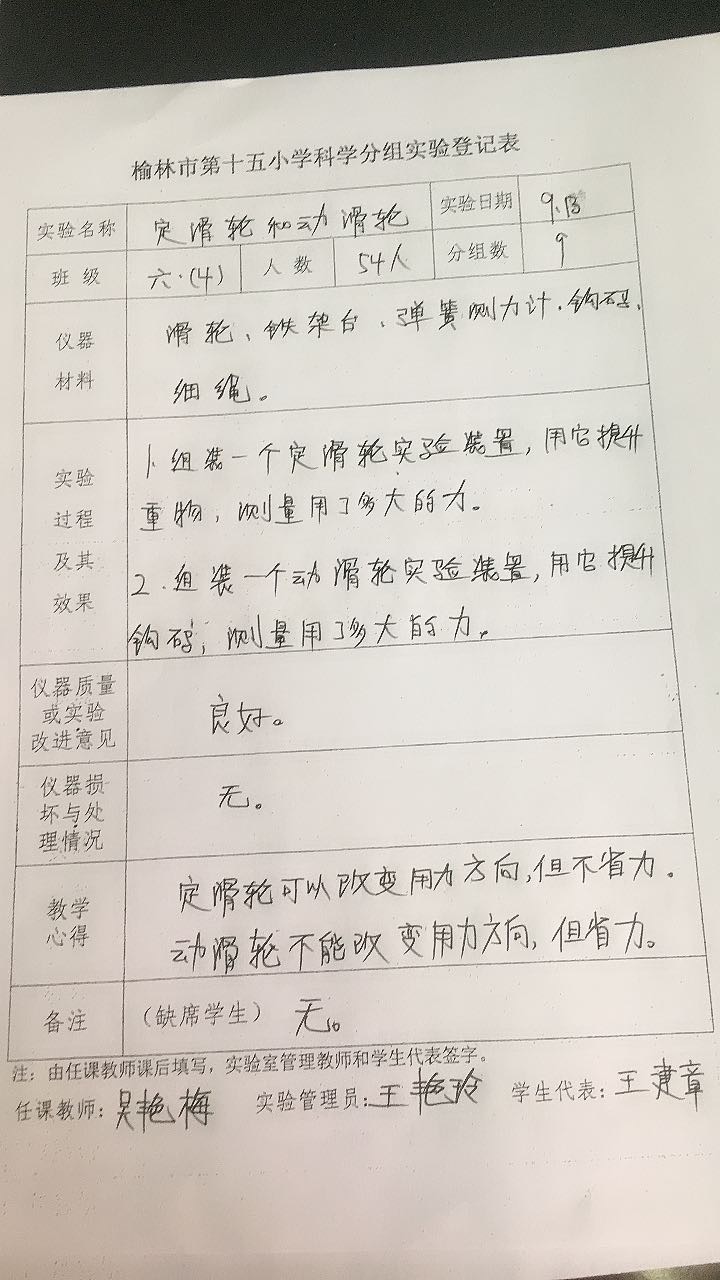 榆林市第十五小学科学分组实验登记表
实验名称 定滑轮和动滑轮 实验日期 9.13
班 级 六.(4) 人 数 54人 分组数 9
仪器
材料
滑轮、铁架台、弹簧测力计、钩码、
细绳。
实验
过程
及其
效果
1.组装一个定滑轮实验装置,用它提升
重物,测量用了多大的力。
2.组装一个动滑轮实验装置,用它提升
钩码,测量用了多大的力。
仪器质量
或实验
改进意见
良好。
仪器损
坏与处
理情况
无。
教学
心得
定滑轮可以改变用力方向,但不省力。
动滑轮不能改变用力方向,但省力。
备注 (缺席学生) 无。
注:由任课教师课后填写,实验室管理教师和学生代表签字。
任课教师:吴艳梅 实验管理员:王艳玲 学生代表:王建章